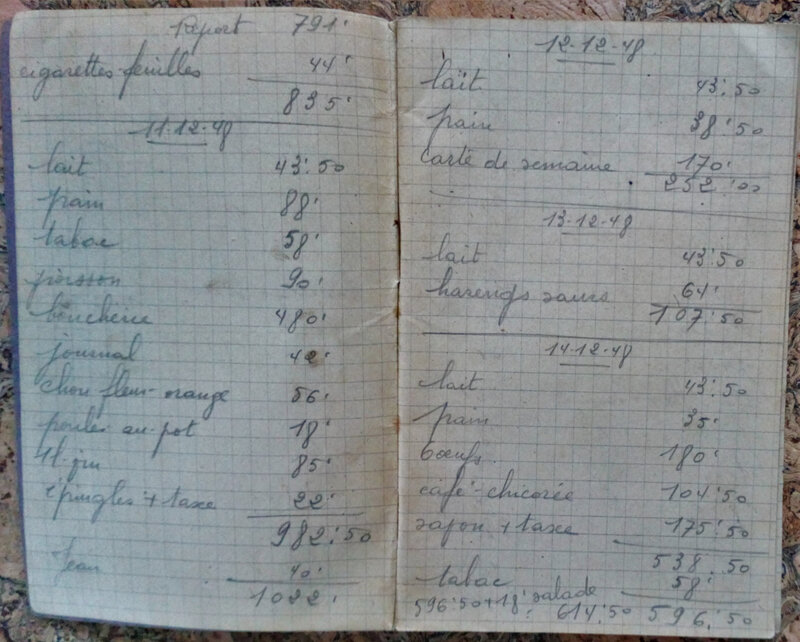 Report 791'
cigarettes feuilles 44'
835'
11-12-48
lait 43'50
pain 88'
tabac 58'
poisson 90'
boucherie 480'
journal 42'
chou fleur-orange 56'
poules au pot 18'
85'
épingles + taxe 22'
982'50
Jean 40'
1022'
12-12-48
lait 43'50
pain 38'50
carte de semaine 170'
252'00
13-12-48
lait 43'50
harengs saurs 64'
107'50
14-12-48
lait 43'50
pain 35'
bœufs 180'
café-chicorée 104'50
savon + taxe 175'50
538.50
tabac 58'
596'50 + 18' salade 614'50 596'50